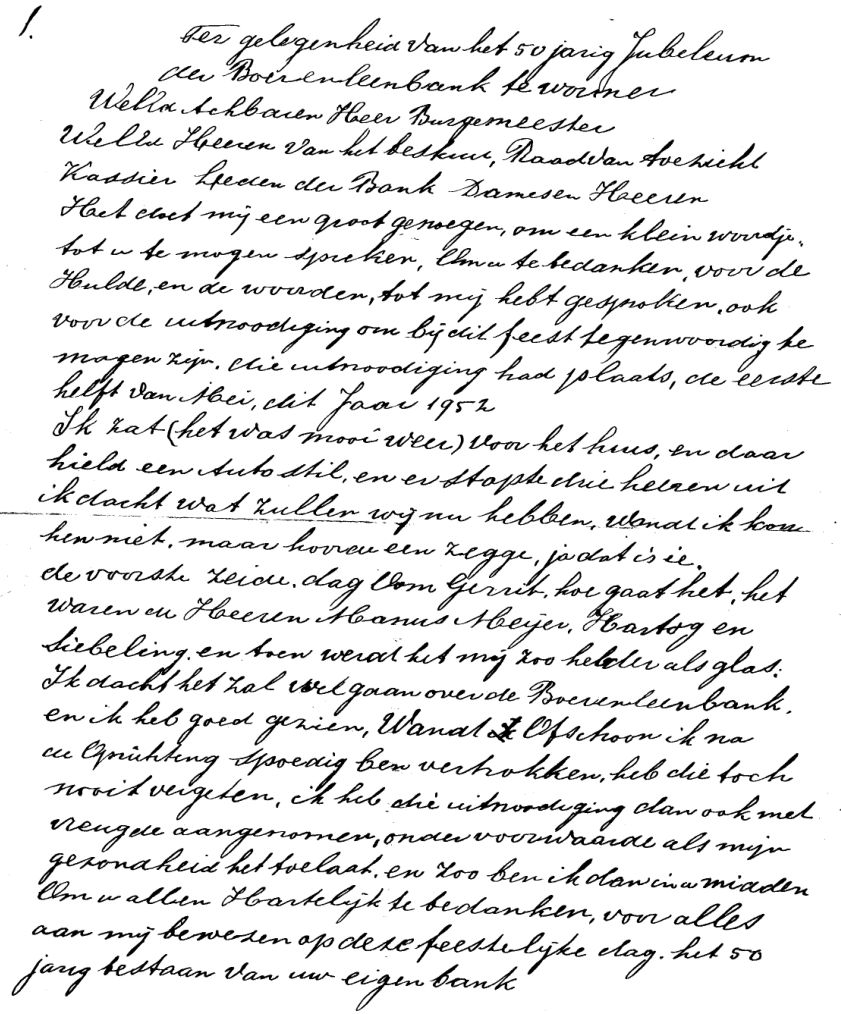 1.
Ter gelegenheid van het 50 jarig Jubeleum
der Boerenleenbank te wormer
WelEd Achbaren Heer Burgemeester
WelEd Heeren van het bestuur, Raad van toezicht
Kassier Leden der Bank Dames en Heeren
Het doet mij een groot genoegen, om een klein woordje,
tot u te mogen spreken, Om u te bedanken, voor de
Hulde, en de woorden, tot mij hebt gesproken, ook
voor de uitnoodiging om bij dit feest tegenwoordig te
mogen zijn. die uitnoodiging had plaats, de eerste
helft van Mei, dit Jaar 1952
Ik zat (het was mooi weer) voor het huis, en daar
hield een Auto stil, en er stapte drie heeren uit
ik dacht wat zullen wij nu hebben, Wandt ik kon
hen niet. maar hoorde een zegge, ja dat is ie.
de voorste zeide. dag Oom Gerrit, hoe gaat het, het
waren de Heeren Manus Meijer, Hartog en
Siebeling. en toen werdt het mij zoo helder als glas:
Ik dacht het zal wel gaan over de Boerenleenbank.
en ik heb goed gezien, Wandt Ofschoon ik na
de Oprichting spoedig ben vertrokken, heb die toch
nooit vergeten, ik heb die uitnoodiging dan ook met
vreugde aangenomen, onder voorwaarde als mijn
gezondheid het toelaat. en zoo ben ik dan in u midden
Om u allen Hartelijk te bedanken, voor alles
aan mij bewezen op deze feestelijke dag. het 50
jarig bestaan van uw eigen bank